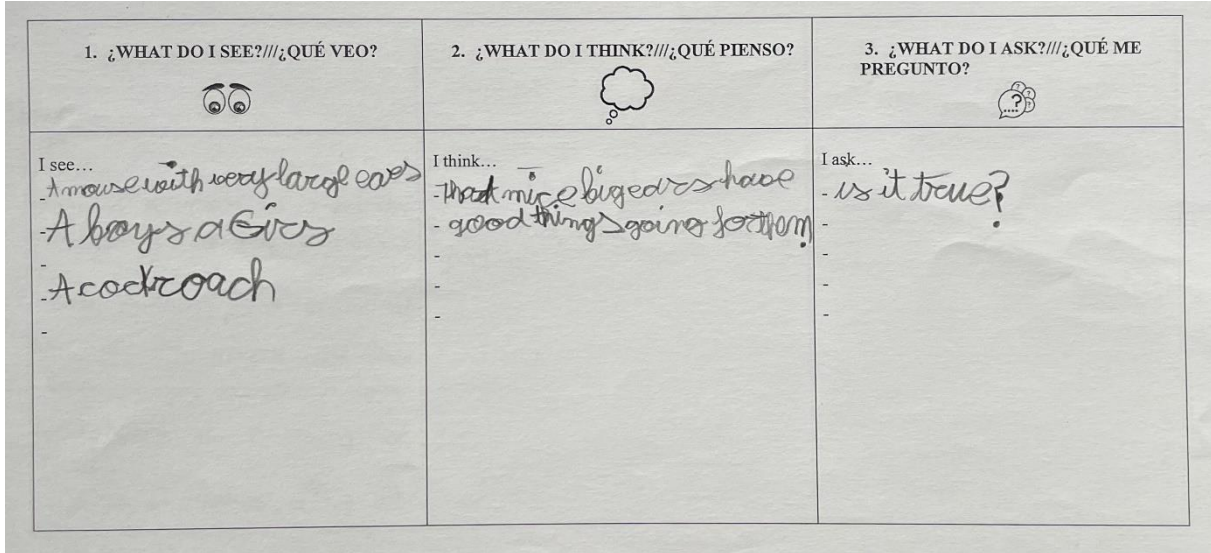 1. ¿WHAT DO I SEE?///¿QUÉ VEO?
2. ¿WHAT DO I THINK?///¿QUÉ PIENSO?
3. ¿WHAT DO I ASK?///¿QUÉ ME
PREGUNTO?
I see...
- A mouse with very large ears
- A boys a Girs
-
- A cockroach
-
I think...
- that mice big ears have
- good things going for them
-
-
-
I ask...
- is it true?
-
-
-
-